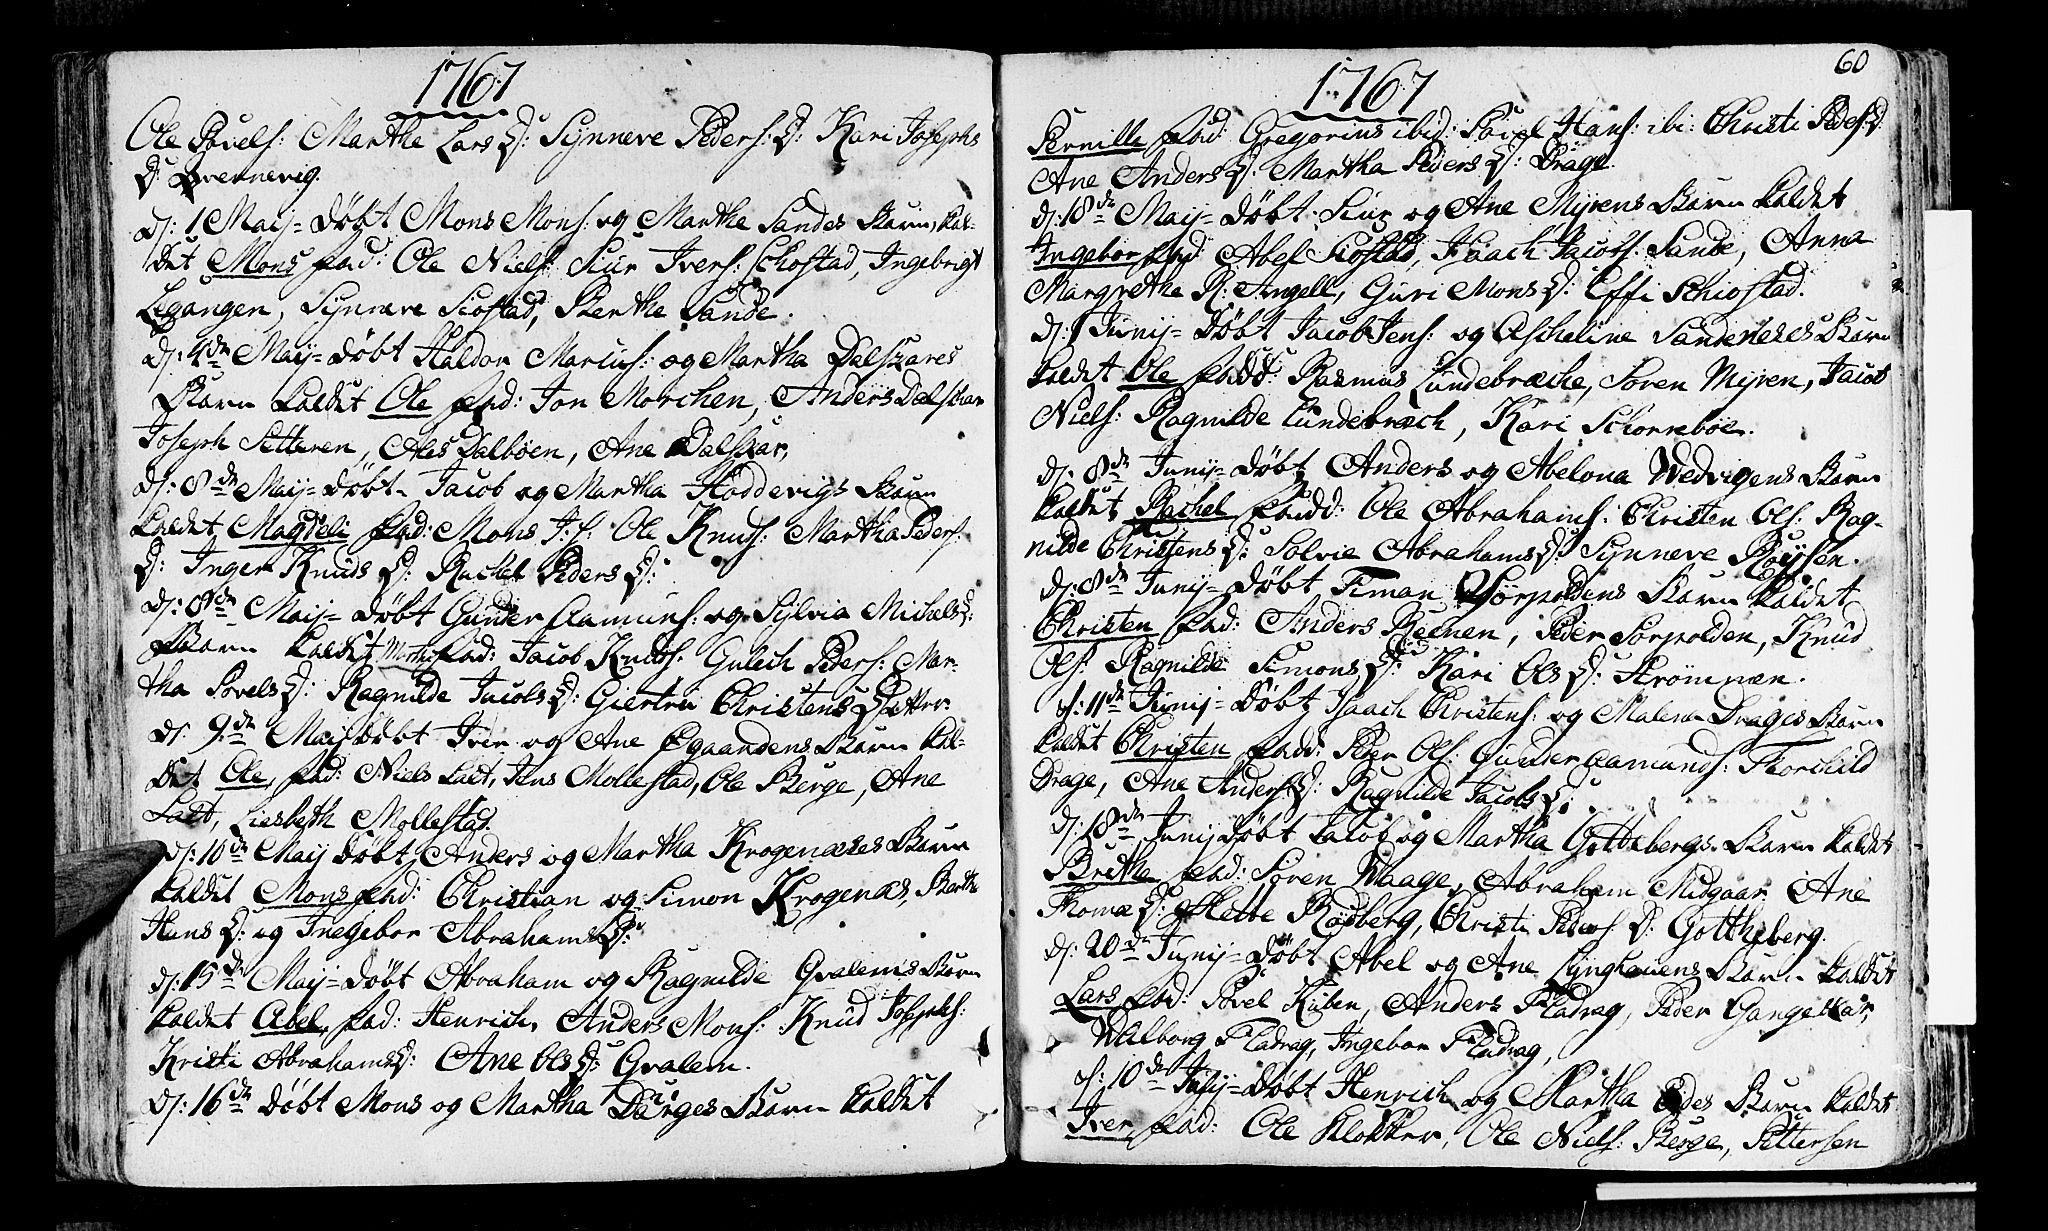 1767
Ole Povels: Marthe Lars D: Synneve Peders: D: Kari Josephs
D: Qvernevig.
d: 1 Maij = døbt Mons Mons: og Marthe Sandes Barn, kal-
det Mons fad: Ole Niels: Siur Ivers: Schostad, Ingebrigt
Legangen, Synneve Siøstad, Berthe Sande.
d: 4de Maij = døbt Haldor Marius: og Martha Dalskares
Barn kaldet Ole fad: Jon Morchen, Anders Dalskar
Joseph Setteren, Ales Dalbøen, Ane Dalskar,
d: 8de Maij = døbt Jacob og Martha Høddevigs Barn
kaldet Magdeli fad: Mons J: S: Ole Knus: Martha Peders:
D: Inger Knuds D: Rachel Peders D:
d: 8de Maij = døbt Gunder Aamuns: og Sylvia Michels D:
Barn kaldet Marthe fad: Jacob Knuds: Gulech Peders: Mar-
tha Povels D: Ragnilde Jacobs D: Giertru Christens Dotter
d: 9de Maij døbt Iver og Ane Egaandens Barn kal-
det Ole, fad: Niels Laet, Jens Mollestad, Ole Berge, Ane
Laet, Liesbeth Mollestad.
d: 10de Maij døbt Anders og Martha Krogenæses Barn
kaldet Mons fad: Christian og Simon Krogenæs, Barthe
Hans D: og Ingebor Abrahams D:
d: 15de Maij = døbt Abraham og Ragnilde Qvalems Barn
kaldet Abel, fad: Henrich, Anders Mons: Knud Josephs:
Kristi Abrahams D: Ane Ols D: Qvalem.
d: 16de døbt Mons og Martha Dauges Barn kaldet
60
1767
Pernille fad: Gregorius ibid: Povel Hans: ibi: Christi Peders: D:
Ane Anders D: Martha Peders D: Drage.
d: 18de Maij = døbt Siur og Ane Myrens Barn kaldet
Ingebor fad: Abel Siostad, Isaach Jacobs: Sande, Anna
Margrethe R: Angell, Guri Mons D: Effi Schiostad.
d: 1 Junij = døbt Jacob Jens: og Ascheline Sandenæses Barn
kaldet Ole fadd: Rasmus Lundebræche, Soren Myren, Jacob
Niels: Ragnilde Lundebræch, Kari Schorrebøe.
d: 8de Junij = døbt Anders og Abelona Wedvigens Barn
kaldet Rachel fadd: Ole Abrahams: Christen Ols: Rag-
nilde Christens D: Solvie Abrahams D: Synneve Røysen.
d: 8de Junij = døbt Timan Sørpoldens Barn kaldet
Christen fad: Anders Reenen, Peder Sorpolden, Knud
Ols: Ragnilde Simons D: Kari Ols D: Strømmen.
d: 11de Junij = døbt Isaach Christens: og Malena Drages Barn
kaldet Christen fadd: Peer Ols: Gunder Aamunds: Thorchild
Drage, Ane Anders: D: Ragnilde Jacobs D:
d: 18de Junij døbt Jacob og Martha Gottebergs Barn kaldet
Brithe fad: Soren Waage, Abraham Nidgaar Ane
Thomæ D: Mette Rødberg, Christi Peders D: Gottheberg.
d: 20de Junij = døbt Abel og Ane Lynghauens Barn kaldet
Lars fad: Povel Kiiben, Anders Fladrag, Peder Gangeskar,
Walborg Fladrag, Ingebor Fladrag,
d: 10de Julij = døbt Henrich og Martha Eides Barn kaldet
Iver fad: Ole Klokker, Ole Niels: Berge, Pettersen